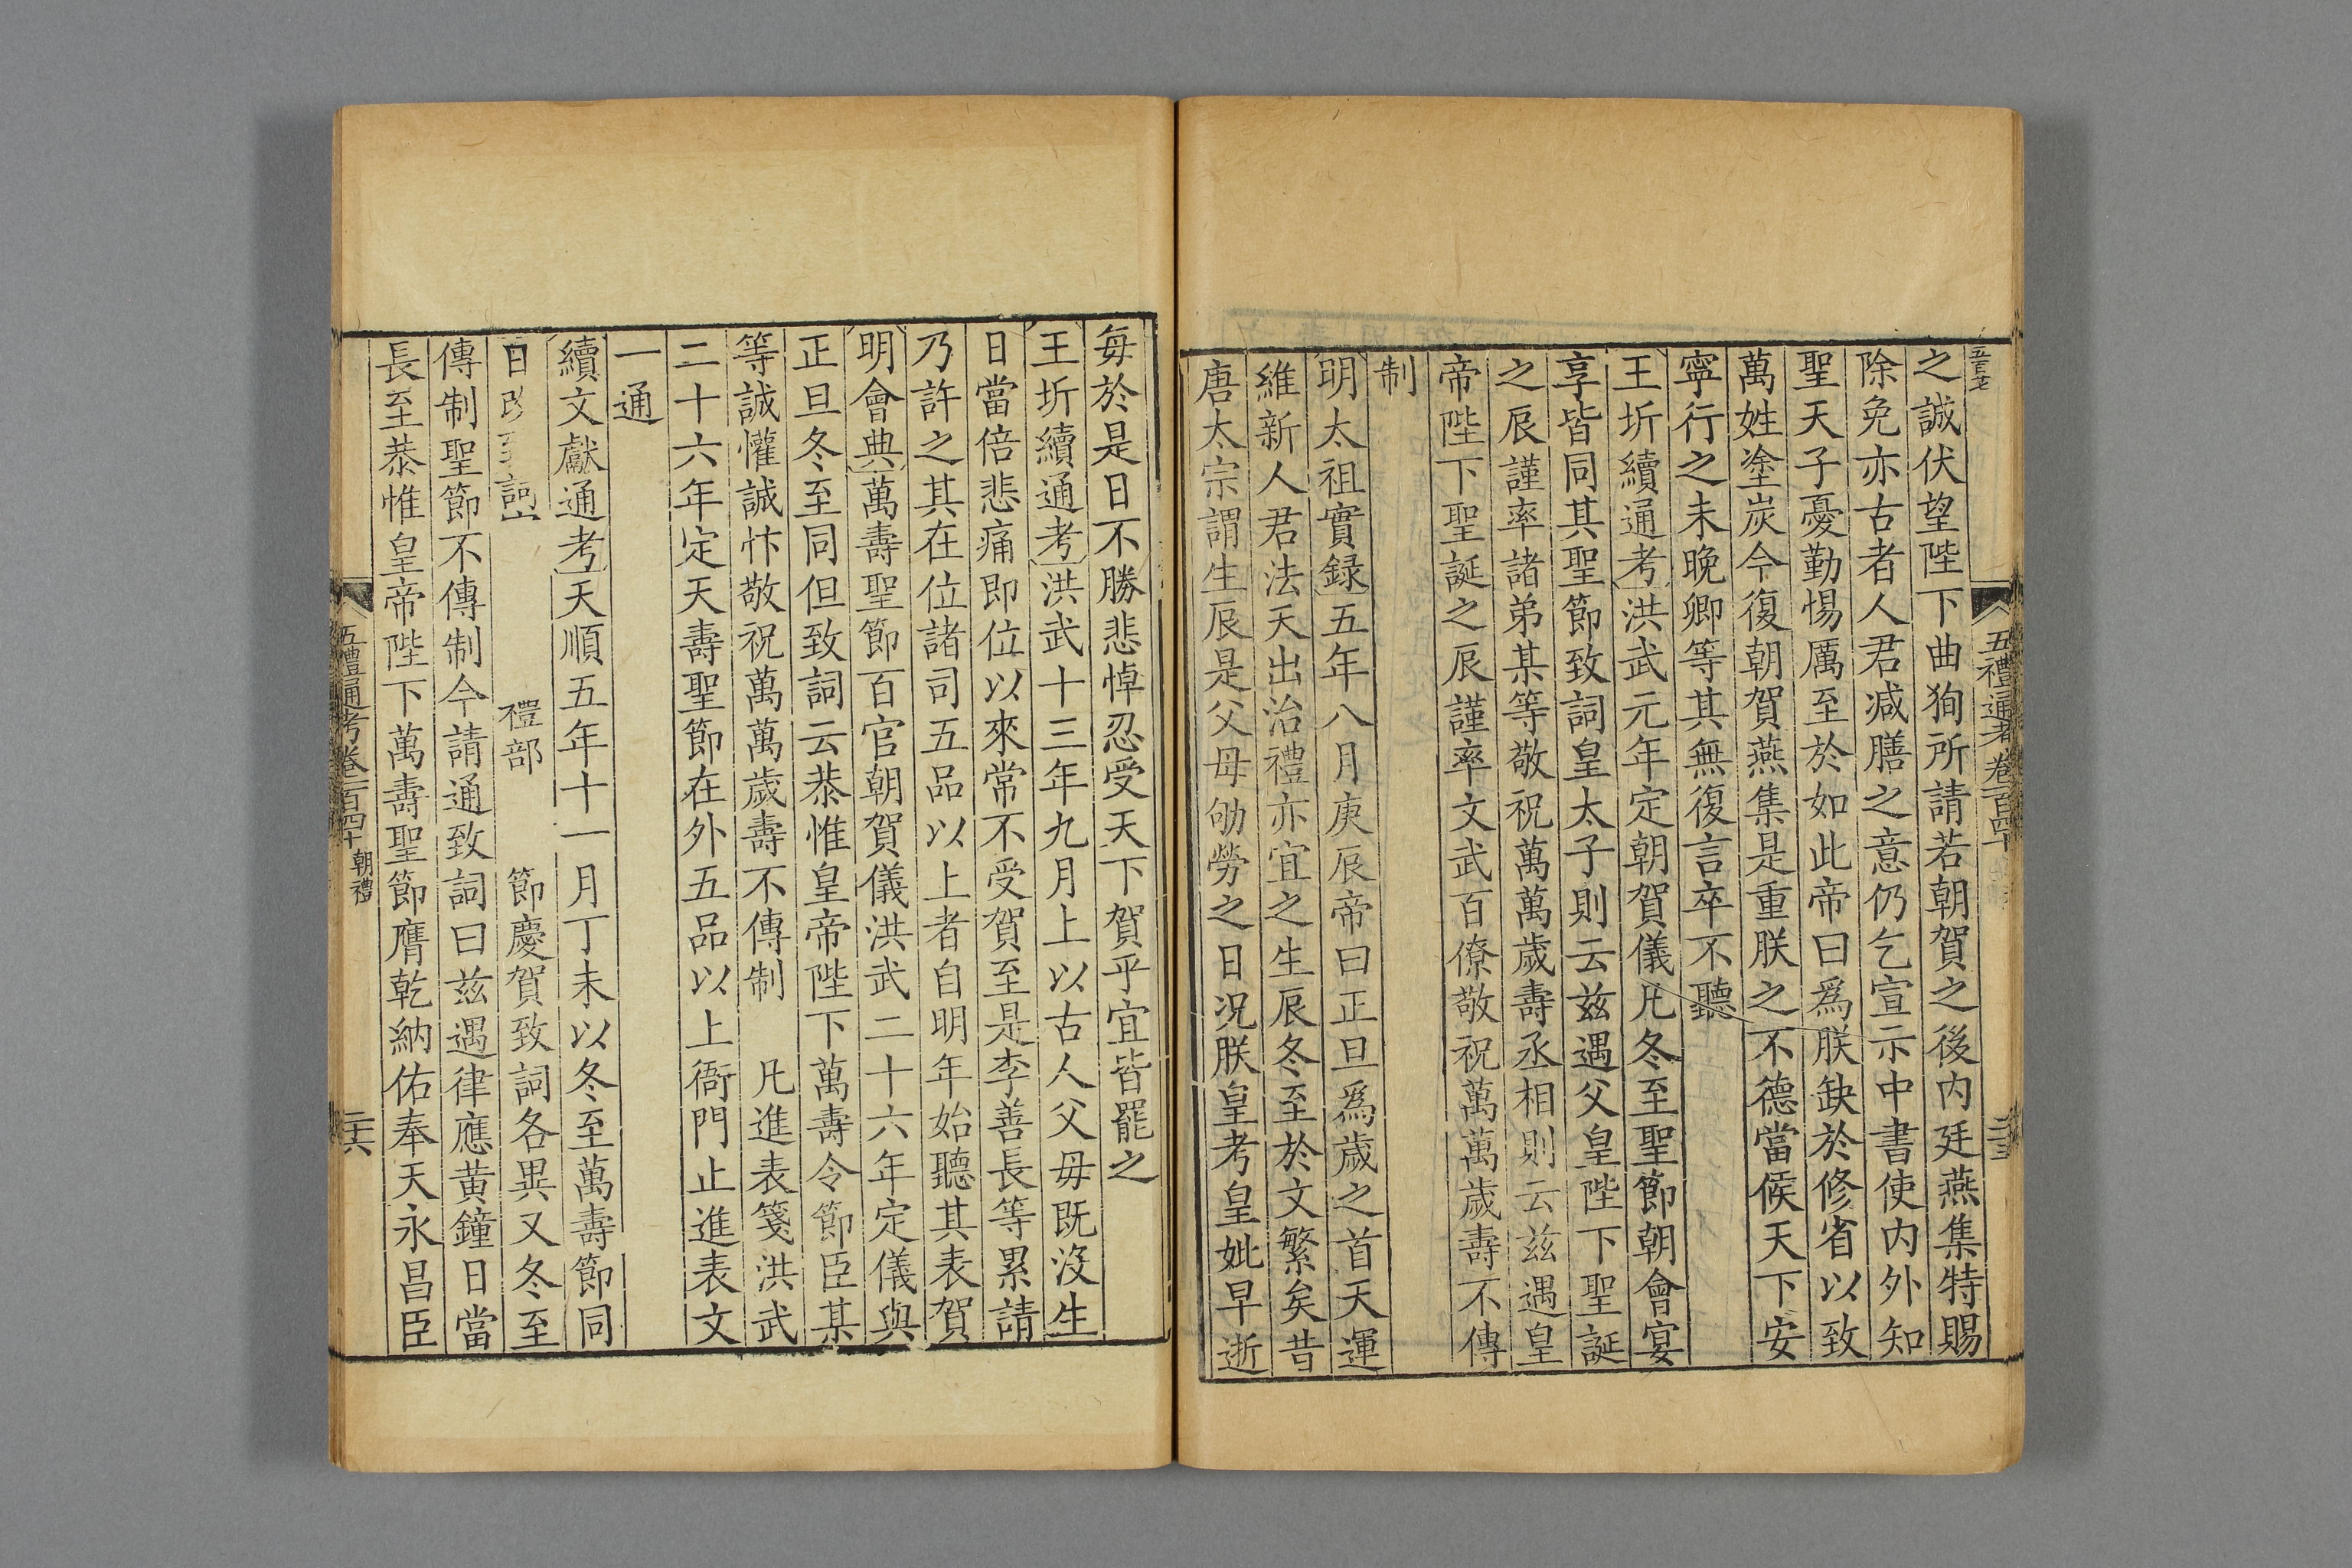 五禮通考卷一百四十
之誠伏望陛下曲狥所請若朝賀之後内廷燕集特賜
除免亦古者人君減膳之意仍乞宣示中書使内外知
聖天子憂勤惕厲至於如此帝曰爲朕缺於修省以致
萬姓塗炭今復朝賀燕集是重朕之不德當候天下安
寧行之未晚卿等其無復言卒不聽
王圻續通考洪武元年定朝賀儀凡冬至聖節朝會宴
享皆同其聖節致詞皇太子則云兹遇父皇陛下聖誕
之辰謹率諸弟某等敬祝萬萬歲壽丞相則云兹遇皇
帝陛下聖誕之辰謹率文武百僚敬祝萬萬歲壽不傳
制
明太祖實録五年八月庚辰帝曰正旦爲歲之首天運
維新人君法天出治禮亦宜之生辰冬至於文繁矣昔
唐太宗謂生辰是父母劬勞之日况朕皇考皇妣早逝
每於是日不勝悲悼忍受天下賀乎宜皆罷之
王圻續通考洪武十三年九月上以古人父母既没生
日當倍悲痛即位以來常不受賀至是李善長等累請
乃許之其在位諸司五品以上者自明年始聽其表賀
明會典萬壽聖節百官朝賀儀洪武二十六年定儀與
正旦冬至同但致詞云恭惟皇帝陛下萬壽令節臣某
等誠懽誠忭敬祝萬萬歲壽不傳制 凡進表箋洪武
二十六年定天壽聖節在外五品以上衙門止進表文
一通
續文獻通考天順五年十一月丁未以冬至萬壽節同
日 禮部 節慶賀致詞各異又冬至
傳制聖節不傳制今請通致詞曰兹遇律應黄鐘日當
長至恭惟皇帝陛下萬壽聖節膺乾納佑奉天永昌臣
五禮通考卷一百四十 朝禮 二十六